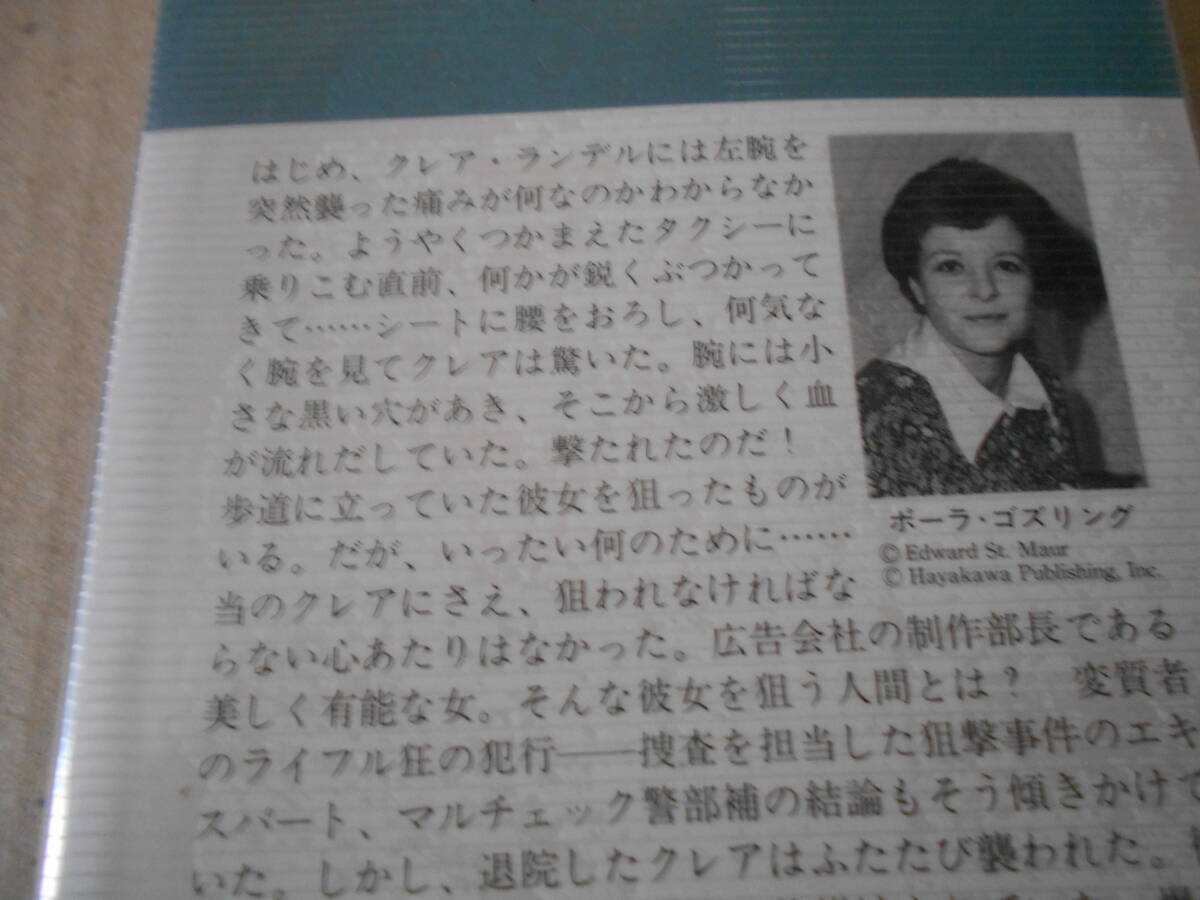 はじめ、クレア・ランデルには左腕を
突然襲った痛みが何なのかわからなか
った。ようやくつかまえたタクシーに
乗りこむ直前、何かが鋭くぶつかって
きて……シートに腰をおろし、何気な
く腕を見てクレアは驚いた。腕には小
さな黒い穴があき、そこから激しく血
が流れだしていた。撃たれたのだ！
歩道に立っていた彼女を狙ったものが
いる。だが、いったい何のために……
当のクレアにさえ、狙われなければな
らない心あたりはなかった。広告会社の制作部長である
美しく有能な女。そんな彼女を狙う人間とは？　変質者
のライフル狂の犯行――捜査を担当した狙撃事件のエキ
スパート、マルチェック警部補の結論もそう傾きかけて
いた。しかし、退院したクレアはふたたび襲われた。
ポーラ・ゴズリング
© Edward St. Maur
© Hayakawa Publishing, Inc.